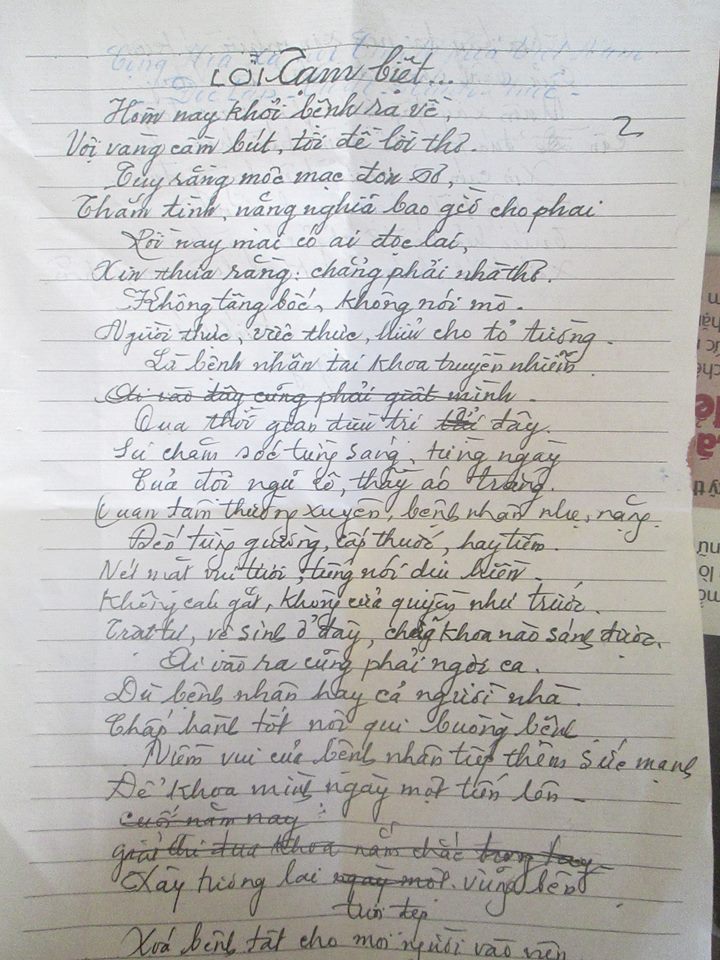 LỜI Tam biết...
2
Hôm nay khỏi bệnh ra về,
Vội vàng cầm bút, tôi đề lời thơ.
Tuy rằng mộc mạc đơn sơ,
Thắm tình, nặng nghĩa bao giờ cho phai
Rồi nay mai có ai đọc lại,
Xin thưa rằng: chẳng phải nhà thơ.
Không tâng bốc, không nói mò.
Người thực, việc thực, hiểu cho tỏ tường.
Là bệnh nhân tại khoa truyền nhiễm
Ai vào đây cũng phải giật mình.
Qua thời gian điều trị tại đây.
Sự chăm sóc từng sáng, từng ngày
Của đội ngũ cô, thầy áo trắng.
Quan tâm thường xuyên, bệnh nhân nhẹ, nặng.
Đến từng giường, cấp thuốc, hay tiêm.
Nét mặt vui tươi, tiếng nói dịu hiền.
Không cau gắt, không cửa quyền như trước.
Trật tự, vệ sinh ở đây, chẳng khoa nào sánh được.
Ai vào ra cũng phải ngợi ca.
Dù bệnh nhân hay cả người nhà.
Chấp hành tốt nội qui buồng bệnh
Niềm vui của bệnh nhân tiếp thêm sức mạnh
Để khoa mình ngày một tiến lên
cuối năm nay
giải thi đua khoa nắm chắc trong tay
Xây tương lai ngay một vững bền
tươi đẹp
Xoá bệnh tật cho mọi người vào viện